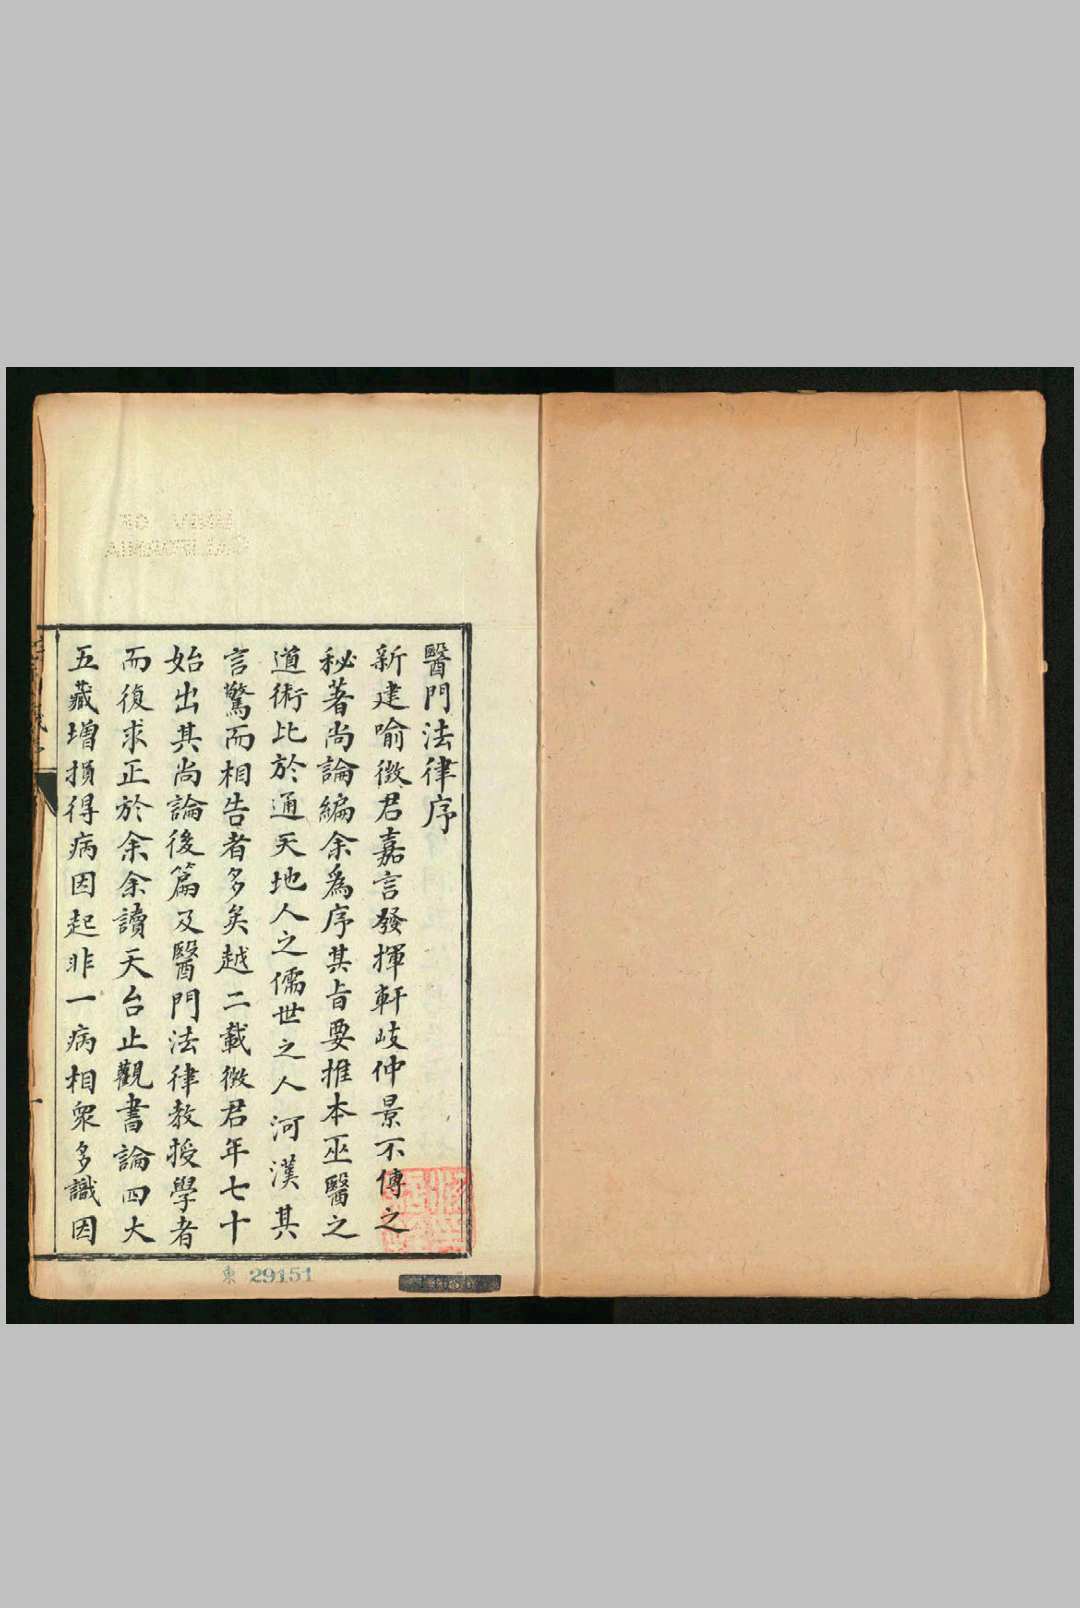 醫門法律序
新建喻徵君嘉言發揮軒岐仲景不傳之
秘著尚論編余爲序其旨要推本巫醫之
道術比於通天地人之儒世之人河漢其
言驚而相告者多矣越二載徵君年七十
始出其尚論後篇及醫門法律教授學者
而復求正於余余讀天台止觀書論四大
五藏增損得病因起非一病相衆多識因
東 29151